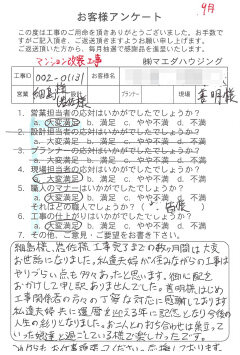 9月
お客様アンケート
この度は工事のご用命を頂きありがとうございました。お手数で
すがご記入頂き、ご返送頂きますようお願い申し上げます。
ご返送頂いた方から、毎月抽選で感謝品を進呈いたします。
マンション改装工事
㈱マエダハウジング
工事ID 002-01131 お客様名
営業 細島様 設計 プランナー 現場
1. 営業担当者の応対はいかがでしたでしょうか？
a. 大変満足 b. 満足 c. やや不満 d. 不満
2. 設計担当者の応対はいかがでしたでしょうか？
a. 大変満足 b. 満足 c. やや不満 d. 不満
3. プランナーの応対はいかがでしたでしょうか？
a. 大変満足 b. 満足 c. やや不満 d. 不満
4. 現場担当者の応対はいかがでしたでしょうか？
a. 大変満足 b. 満足 c. やや不満 d. 不満
5. 職人のマナーはいかがでしたでしょうか？
a. 大変満足 b. 満足 c. やや不満 d. 不満
それはどの職人でしょうか？
6. 工事の仕上がりはいかがでしたでしょうか？
a. 大変満足 b. 満足 c. やや不満 d. 不満
7. その他、ご意見・ご要望をお書き下さい。
工事完了までの数ヶ月間は大変
お世話になりました。私達夫婦が住みながらの工事は
やりづらい点も多々あったと思います。個々に配を
おかけして申し訳ありませんでした。はじめ
工事関係者の方々の丁寧な対応に感謝しております
私達夫婦共に還暦を迎える年に記念となり今後の
人生の彩りとなりました。お二人との打ち合わせは楽しくて